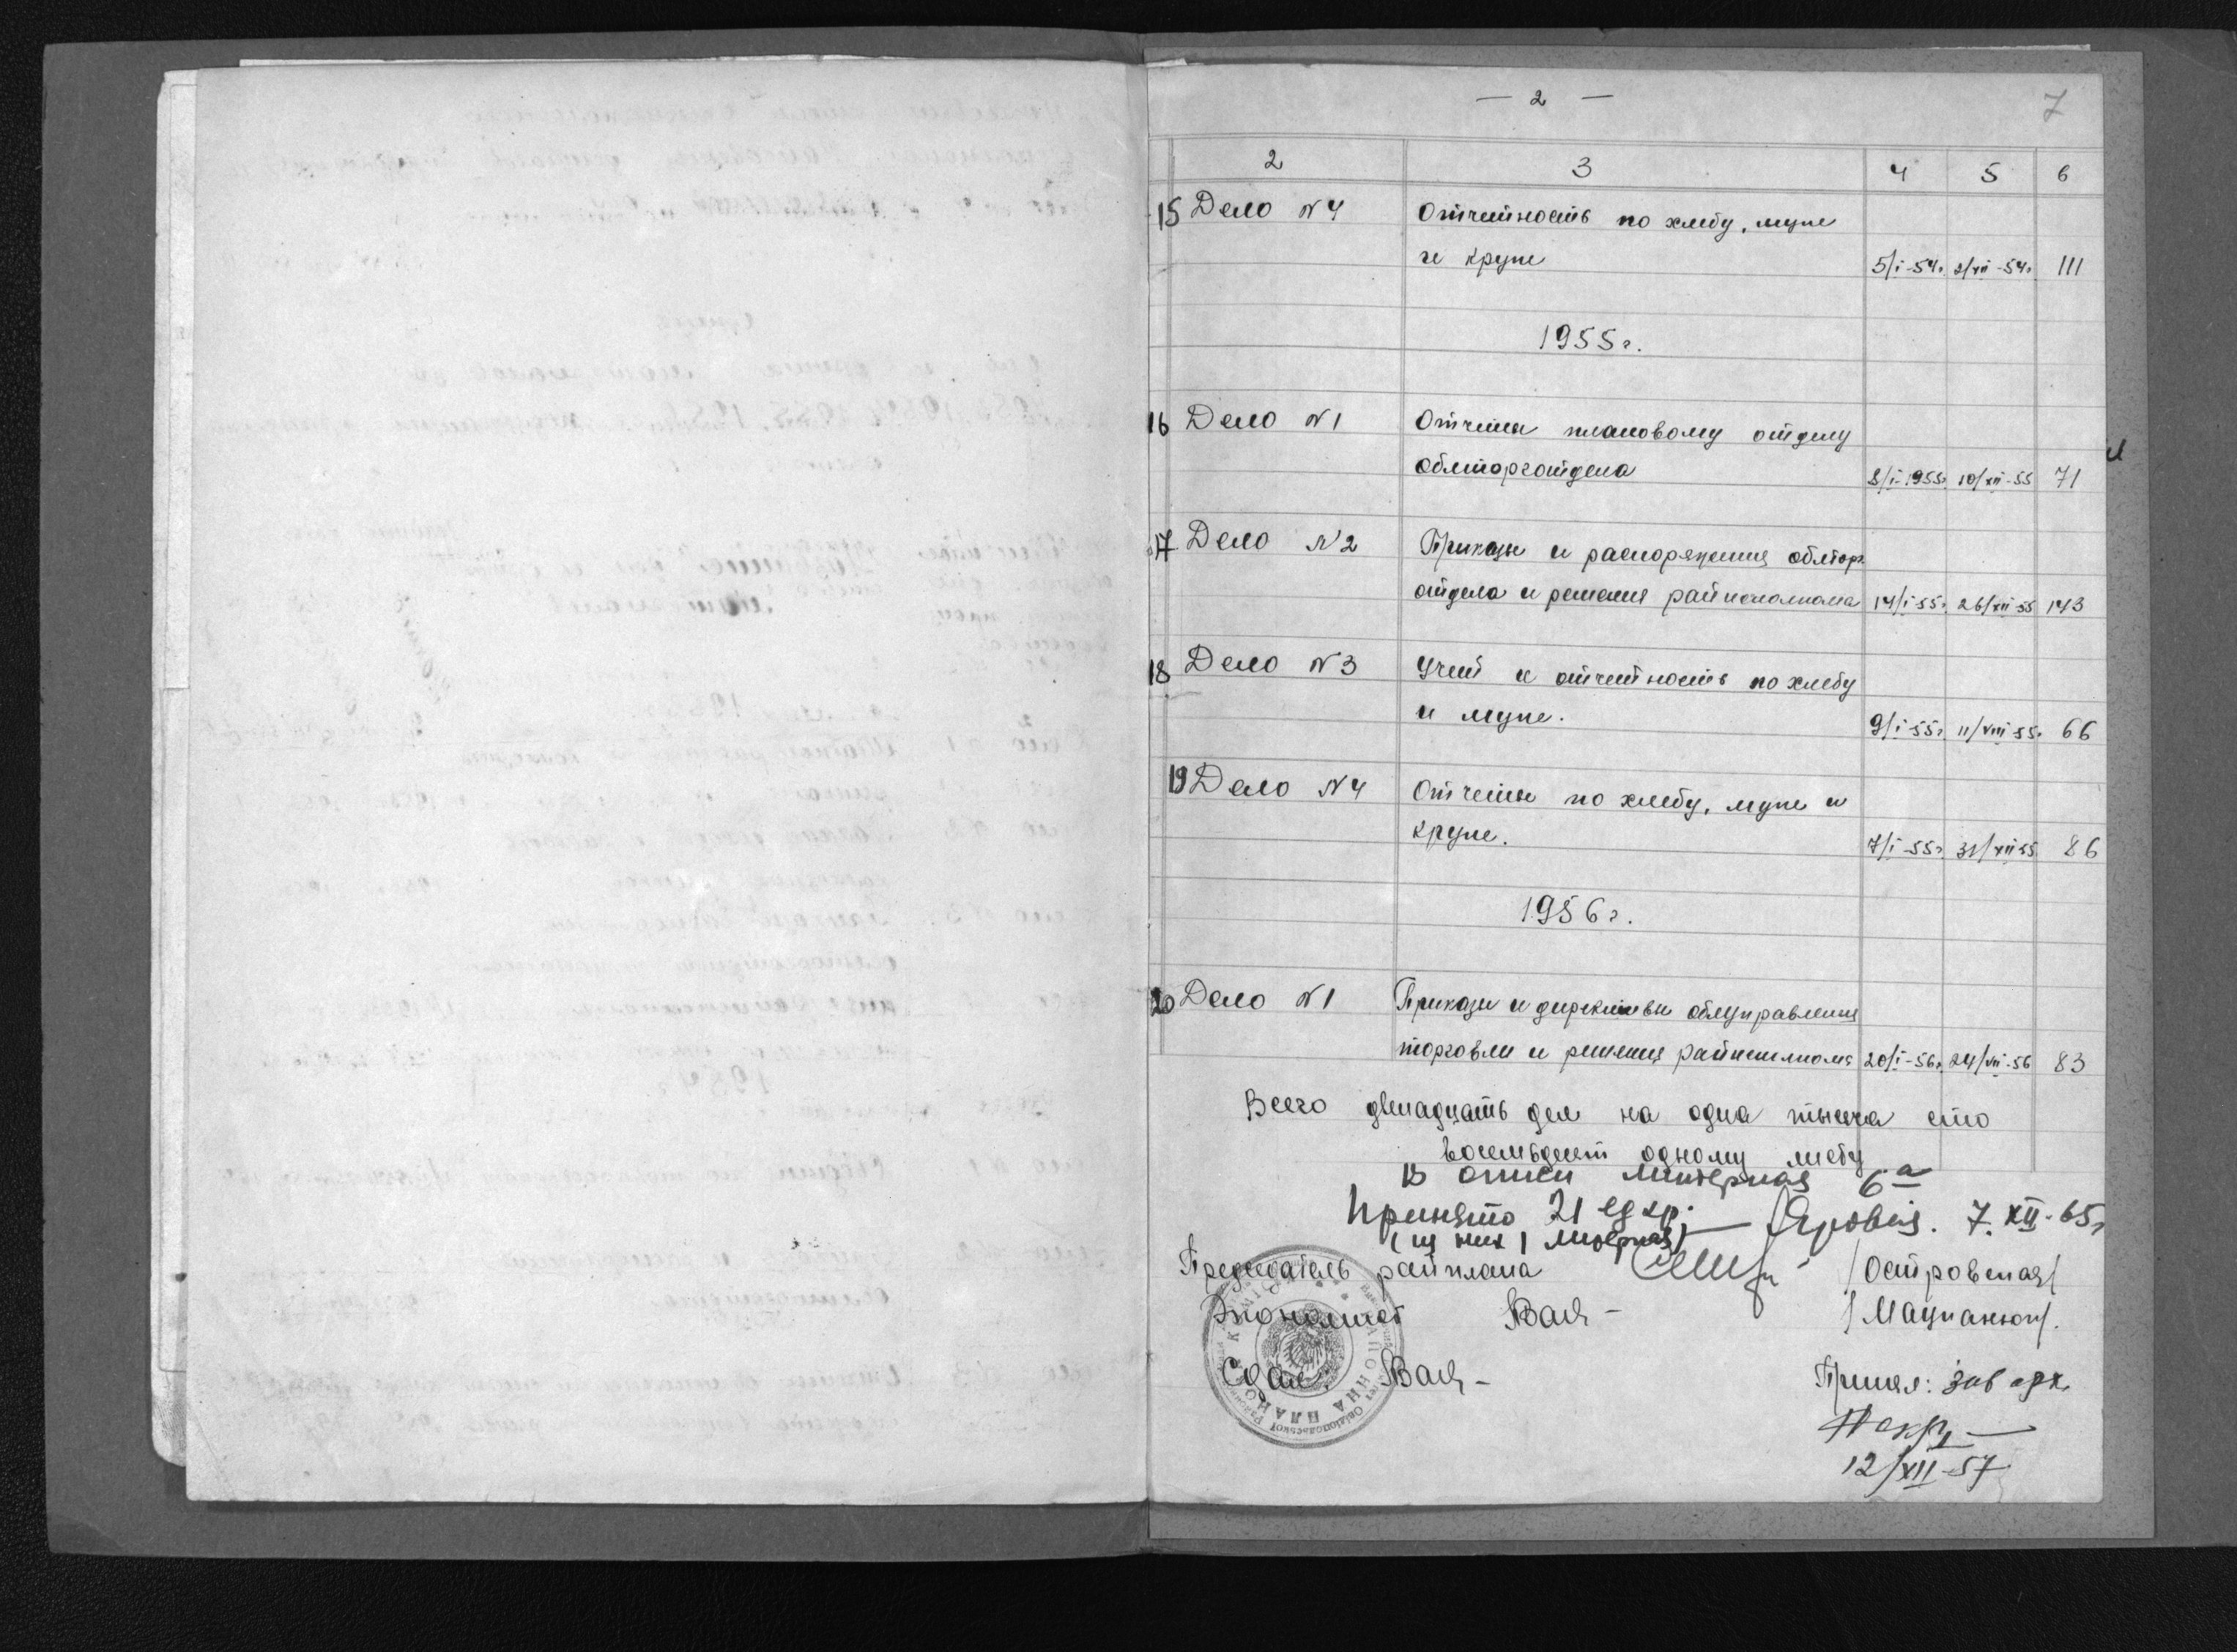 — 2 —
7
2 3 4 5 6
15 Дело №4 Отчетность по хлебу, муке
и крупе 5/I-54г. 2/XII-54г. 111
1955г.
16 Дело №1 Отчеты плановому отделу
облторготдела 8/I-1955г. 10/XII-55 71
17 Дело №2 Приказы и распоряжения облторг
отдела и решения райисполкома 14/I-55г. 26/XII-55 143
18 Дело №3 Учет и отчетность по хлебу
и муке. 9/I-55г. 11/VIII-55г. 66
19 Дело №4 Отчеты по хлебу, муке и
крупе. 7/I-55г. 31/XII-55 86
1956г.
20 Дело №1 Приказы и директивы облуправления
торговли и решения райисполкома 20/I-56г. 24/VII-56 83
Всего двенадцать дел на одна тысяча сто
восемьдесят одному листу
В описи литерная 6а
Принято 21 ед хр. — Яровая. 7.XII-65г
(из них 1 литерная)
Председатель райплана /Островская/
Экономист /Мацианюк/.
Сдал: Принял: зав арх.
12/XII-57